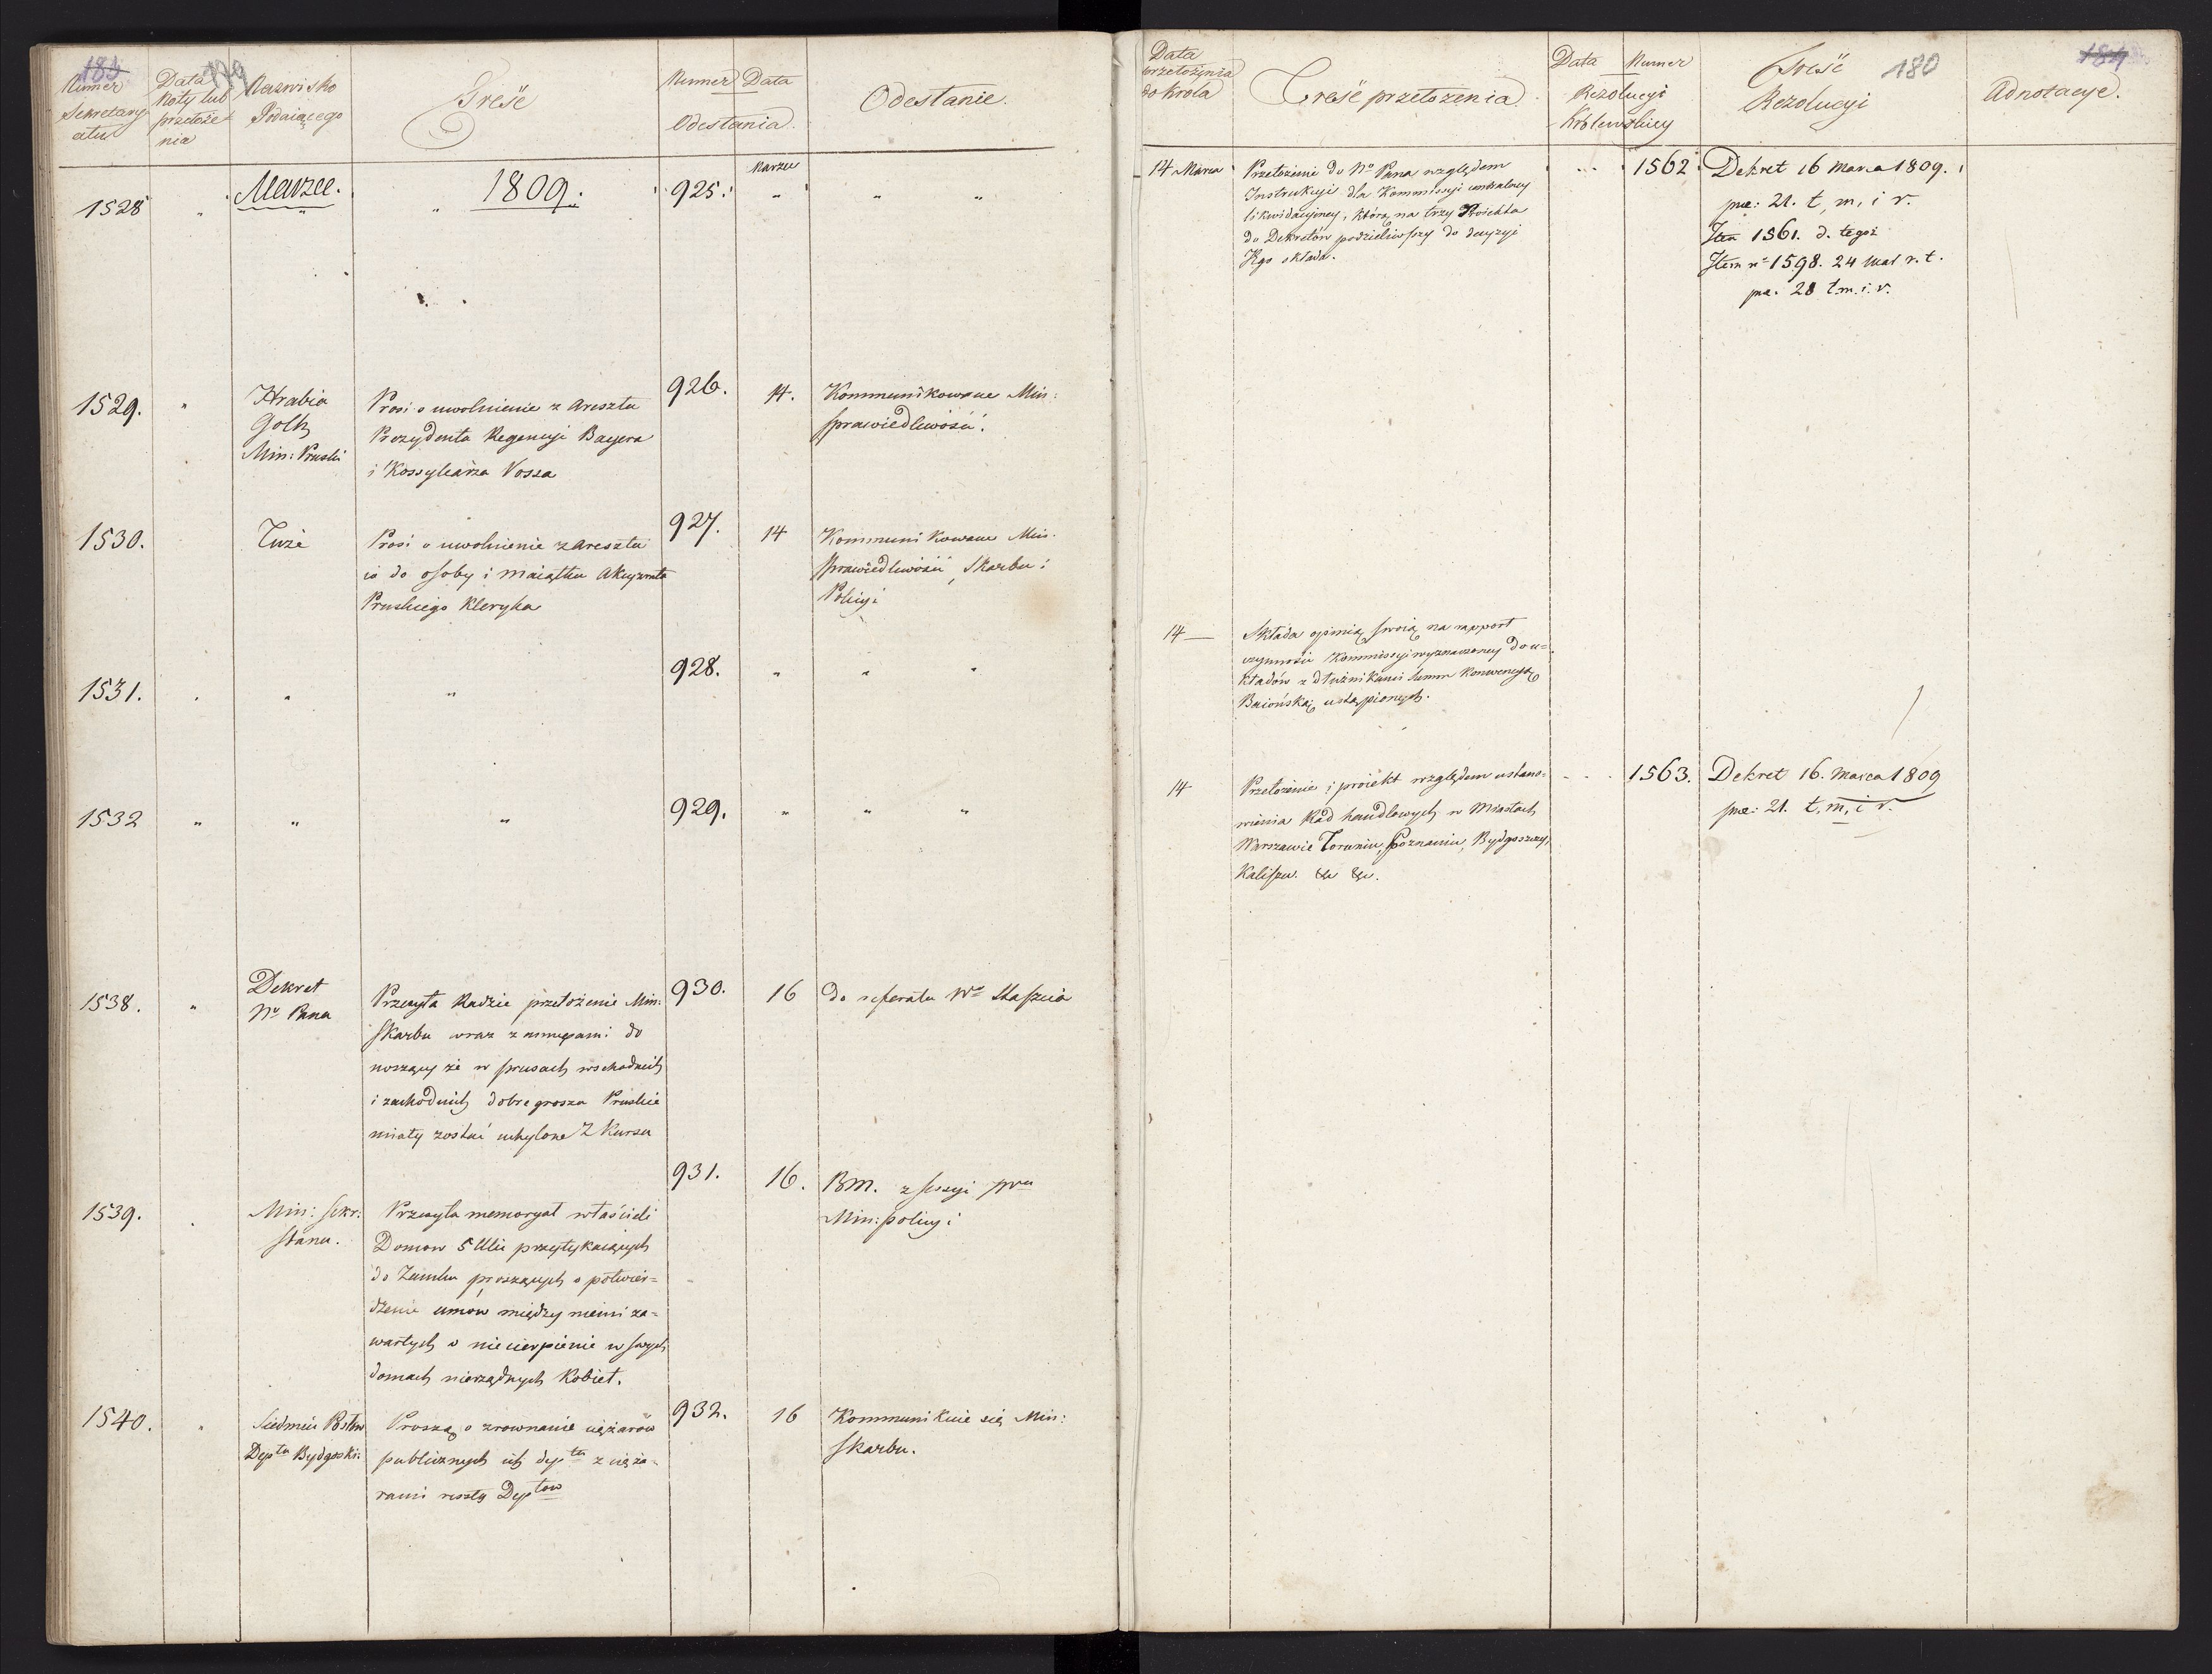 183
179
Numer
Sekretary-
atu
Data
Noty lub
przełoże-
nia
Nazwisko
Podaiącego
Treść
Numer Data
Odesłania.
Odesłanie.
Marzec. 1809. Marzec
1528 " " " 925. " " "
1529. " Hrabia
Goltz
Min: Pruski
Prosi o uwolnienie z Aresztu
Prezydenta Regencyi Bayera
i Kossyliarza Vossa
926. 14. Kommunikowane Min:
sprawiedliwości.
1530. Tuże
Prosi o uwolnienie z Aresztu
co do osoby i Maiątku
Pruskiego Kleryka
927. 14 Kommunikowane Min.
sprawiedliwości, Skarbu i
Policyi
1531. " " " 928. " " "
1532 " " " 929. " " "
1538. " Dekret
No Pana
Przesyła Radzie przełożenie Min:
Skarbu wraz z annexami do
noszący że w prusach wschodnich
i zachodnich dobre grosza Pruskie
miały zostać uchylone z Kursu
930. 16 do referatu Wo Staszica
1539. Min: sekr:
stanu.
Przesyła memoryał właścicieli
Domow 5 Ulic przytykaiących
do Zamku proszących o potwier=
dzenie umów między niemi za=
wartych o niecierpienie w swych
domach nierządnych Kobiet.
931. 16. BM. z sessyi
Min: policyi
1540. " Siedmiu Posłow
Depta Bydgoski:
Proszą o zrownanie ciężarów
publicznych ich depta z cięża-
rami reszty Deptow
932. 16 Kommunikuie się Min:
Skarbu.
180
184
Data
przełożenia
do Krola
Treść przełożenia.
Data Numer
Rezolucyi
Królewskiey
Treść
Rezolucyi
Adnotacye.
14 Marca Przełożenie do No Pana względem
Instrukcyi dla Kommissyi centralney
likwidacyjney, którą na trzy Proiekta
do Dekretów podzieliwszy do decyzyi
Jego składa.
1562. Dekret 16 Marca 1809.
pre: 21. t, m, i r.
Item 1561. d. tegoż
Item no 1598. 24 Mar r. t.
pre. 28 t.m.i.r.
14 — Składa opinią swoią na rapport
czynności Kommissyi wyznaczoney do u=
kładów z dłużnikami summ Konwencyą
Baiońską ustąpionych.
14 Przełożenie i proiekt względem ustano=
wienia Rad handlowych w Miastach
Warszawie Toruniu, Poznaniu, Bydgoszczy,
Kaliszu. &c &c.
1563. Dekret 16. Marca 1809
pre: 21. t, m, i r.